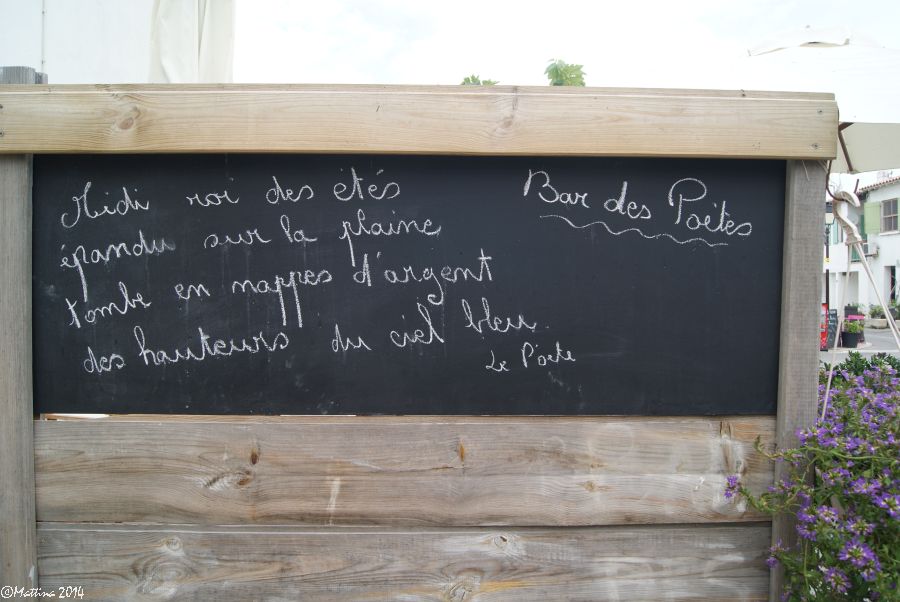 Midi roi des étés
épandu sur la plaine
tombe en nappes d'argent
des hauteurs du ciel bleu.
Le Pöete
Bar des Poëtes
©Mattina 2014